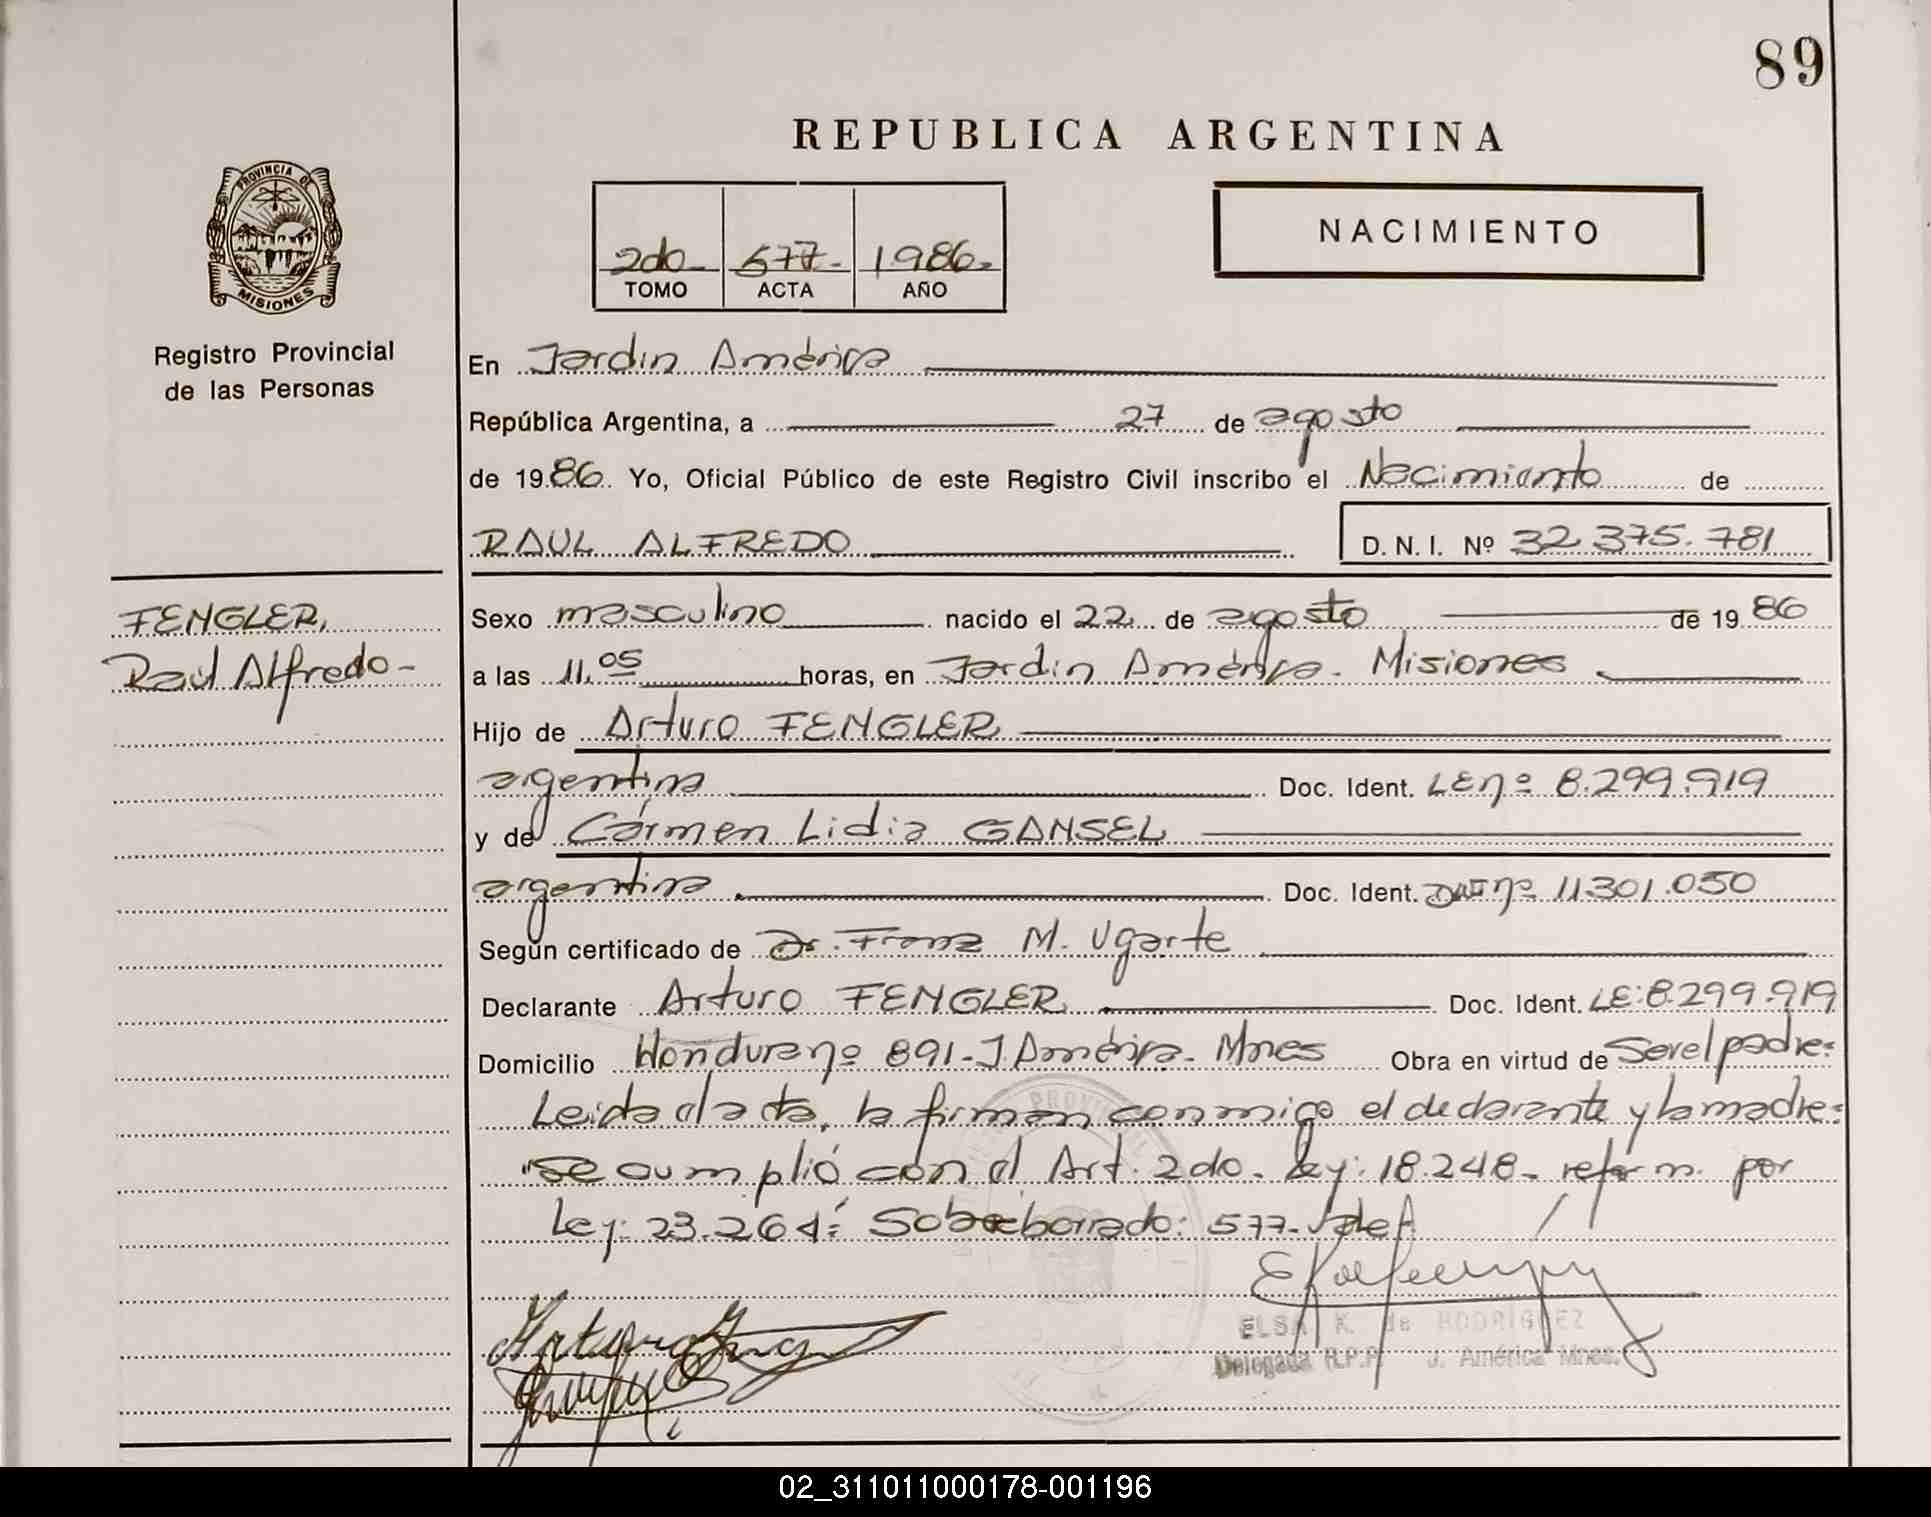 89
REPUBLICA ARGENTINA
PROVINCIA DE
MISIONES
Registro Provincial
de las Personas
2do- 577- 1986-
TOMO ACTA AÑO
NACIMIENTO
En Jardín América
República Argentina, a 27 de agosto
de 1986. Yo, Oficial Público de este Registro Civil inscribo el Nacimiento de
RAUL ALFREDO D. N. I. Nº 32.375.781
FENGLER,
Raul Alfredo-
Sexo masculino nacido el 22 de agosto de 1986
a las 11,05 horas, en Jardin América. Misiones
Hijo de Arturo FENGLER
argentina Doc. Ident. LE nº 8.299.919
y de Cármen Lidia GANSEL
argentina Doc. Ident. DNI nº 11.301.050
Según certificado de Dr. Franz M. Ugarte
Declarante Arturo FENGLER Doc. Ident. LE: 8.299.919
Domicilio Hondura nº 891-J. América- Mnes Obra en virtud de Ser el padre:
Leida el acta, la firman conmigo el declarante y la madre:
"Se cumplió con el Art. 2do. Ley: 18.248- reform. por
Ley: 23.264: Sobreborrado: 577-
ELSA K. de RODRIGUEZ
Delegada R.P.P. J. América Mnes.
02_311011000178-001196